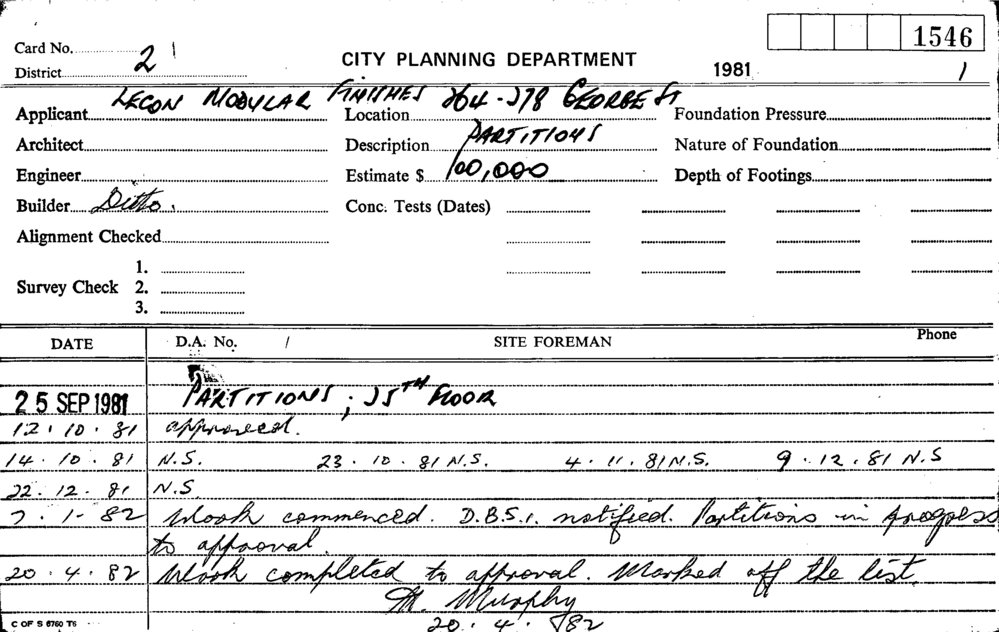 1546
Card No. 2
District
CITY PLANNING DEPARTMENT
1981 1
Applicant LECON MODULAR FINISHES Location 264-278 GEORGE ST Foundation Pressure
Architect Description PARTITIONS Nature of Foundation
Engineer Estimate $ 100,000 Depth of Footings
Builder Ditto. Conc. Tests (Dates)
Alignment Checked
1.
Survey Check 2.
3.
DATE D.A. No. / SITE FOREMAN Phone
25 SEP 1981 PARTITIONS ; 25TH FLOOR
12.10.81 approved.
14.10.81 N.S. 23.10.81 N.S. 4.11.81 N.S. 9.12.81 N.S
22.12.81 N.S.
7.1.82 Work commenced. D.B.S.1. notified. Partitions in progress
to approval.
20.4.82 Work completed to approval. Marked off the list.
M. Murphy
20.4.82
C OF S 6760 T6